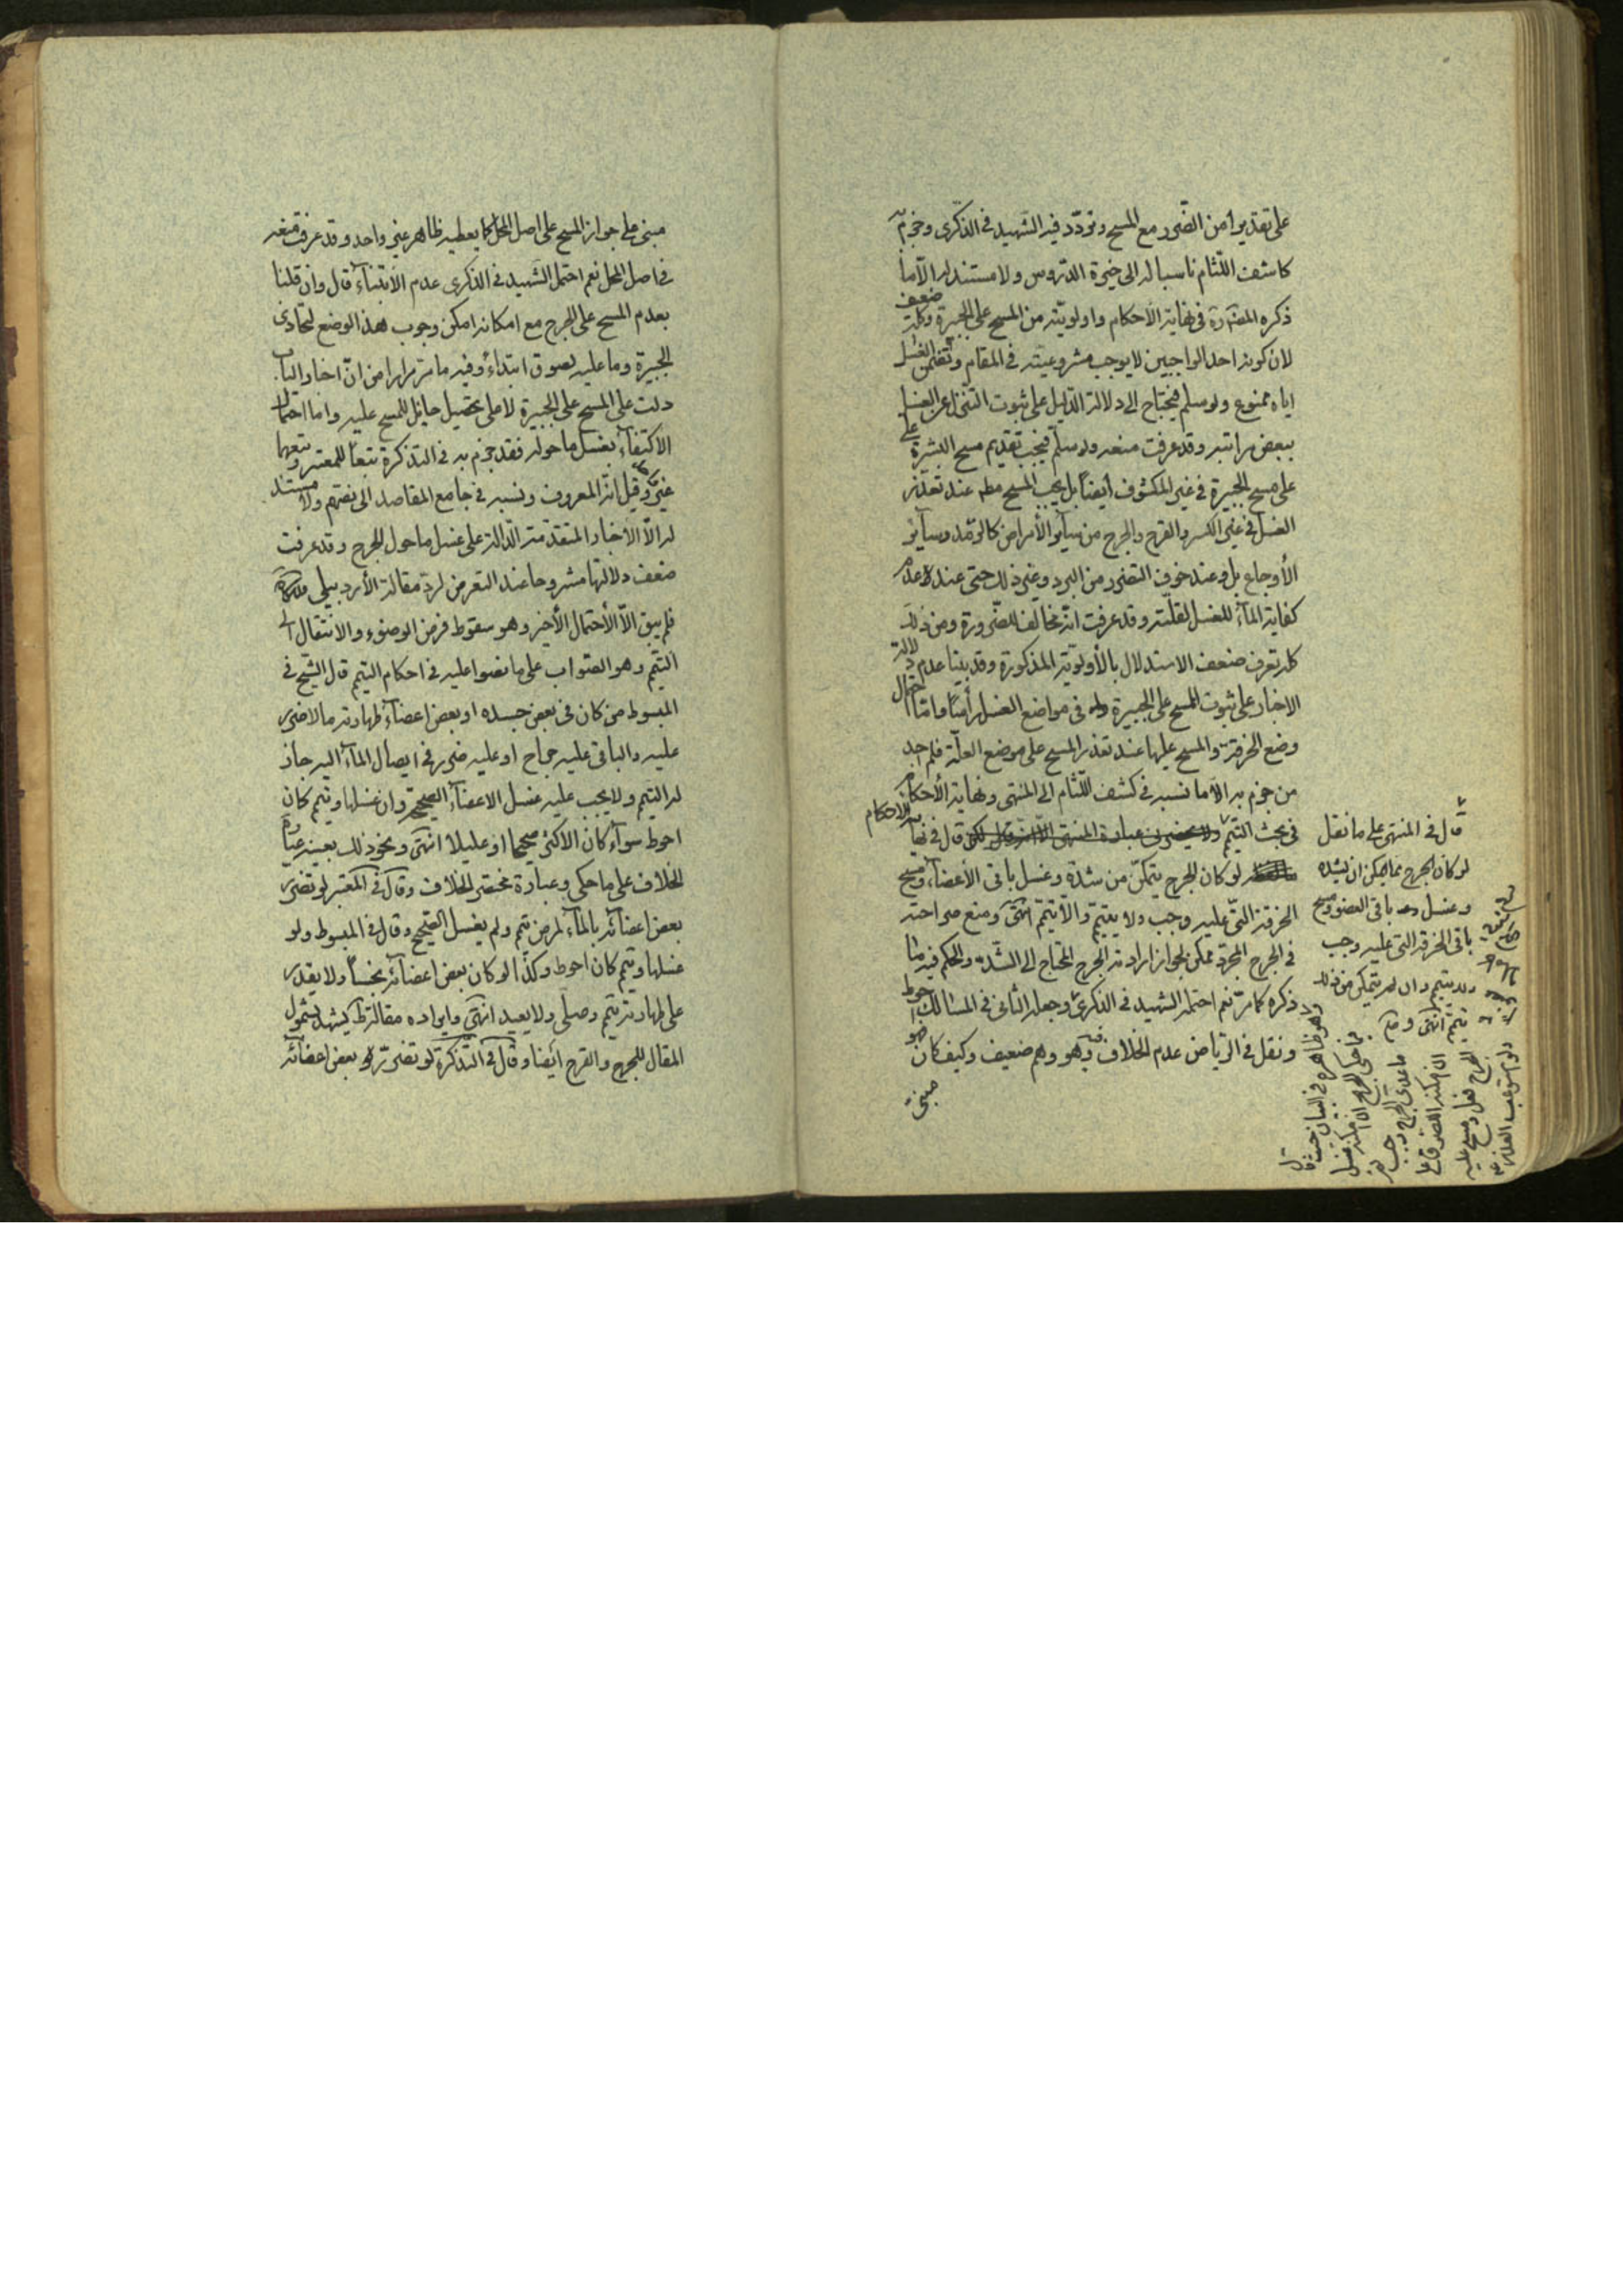 على تقدير امن الضرر مع المسح وتردد فيه الشهيد في الذكرى وجزم به
كاشف اللثام ناسبا له الى خيرة الدروس ولا مستند له الا ما
ذكره المصنف ره في نهاية الأحكام واولويته من المسح على الجبيرة وكلمة ضعف
لان كونه احد الواجبين لا يوجب مشروعيته في المقام وتضمن الغسل
اياه ممنوع ولو سلم فيحتاج الى دلالة الدليل على ثبوت التنزل عن الغسل
ببعض مراتبه وقد عرفت منعه ولو سلم فيجب تقديم مسح البشرة
على مسح الجبيرة في غير المكشوف أيضا بل يجب المسح مطم عند تعذر
الغسل في غير الكسر والقرح والجرح من سآئر الأمراض كالرمد وسآئر
الأوجاع بل وعند خوف التضرر من البرد وغير ذلك حتى عند عدم
كفاية المآء للغسل لقلته وقد عرفت انه مخالف للضرورة ومن ذلك
كله تعرف ضعف الاستدلال بالأولوية المذكورة وقد بينا عدم دلالة
الاخبار على ثبوت المسح على الجبيرة في مواضع الغسل رأسا واما احتمال
وضع الخرقة والمسح عليها عند تعذر المسح على موضع العلة فلم اجد
من جزم به الا ما نسبه في كشف اللثام الى المنتهى ونهاية الأحكام
في بحث التيمم قال في نهاية الاحكام
لو كان الجرح يتمكن من شده وغسل باقى الأعضآء ومسح
الخرقة التى عليه وجب ولا يتيمم والا تيمم انتهى ومنع صراحته
في الجرح المجرد ممكن لجواز ارادته الجرح المحتاج الى الشد والحكم فيه ما
ذكره كما مر نعم احتمله الشهيد في الذكرى وجعله الثانى في المسالك احوط
ونقل في الرياض عدم الخلاف فيه وهو وهم ضعيف وكيف كان فهو
مبنى
قال في المنتهى على ما نقل
لو كان الجرح مما يمكن ان يشده
وغسل باقى العضو ومسح
باقى الخرقة التى عليه وجب
ولا يتيمم وان لم يتمكن من ذلك
تيمم انتهى
مبنى على جواز المسح على اصل المحل كما يعطيه ظاهر غير واحد وقد عرفت منعه
في اصل المحل نعم احتمل الشهيد في الذكرى عدم الأبتناء قال وان قلنا
بعدم المسح على الجرح مع امكانه امكن وجوب هذا الوضع لتحاذى
الجبيرة وما عليه لصوق ابتداء وفيه ما مر مرارا من ان اخبار الباب
دلت على المسح على الجبيرة لا على تحصيل حائل للمسح عليه واما احتمال
الاكتفآء بغسل ما حوله فقد جزم به في التذكرة تبعا للمعتبر وتبعهما
غير وقيل انه المعروف ونسبه في جامع المقاصد الى نصهم ولا مستند
له الا الأخبار المتقدمة الدالة على غسل ما حول الجرح وقد عرفت
ضعف دلالتها مشروحا عند التعرض لرد مقالة الأردبيلى
فلم يبق الا الأحتمال الأخير وهو سقوط فرض الوضوء والانتقال الى
التيمم وهو الصواب على ما نصوا عليه في احكام التيمم قال الشيخ في
المبسوط من كان في بعض جسده او بعض اعضآء طهارته ما لا ضرر
عليه والباقى عليه جراح او عليه ضرر في ايصال المآء اليه جاز
له التيمم ولا يجب عليه غسل الاعضآء الصحيحة وان غسلها وتيمم كان
احوط سوآء كان الأكثر صحيحا او عليلا انتهى ونحو ذلك بعينه عبارة
الخلاف على ما حكى وعبارة مختصر الخلاف وقال في المعتبر لو تضرر
بعض اعضآئه بالمآء لمرض تيمم ولم يغسل الصحيح وقال في المبسوط ولو
غسلها وتيمم كان احوط وكذا لو كان بعض اعضآئه نجسا ولا يقدر
على طهارته تيمم وصلى ولا يعيد انتهى وايراده مقالة يشهد بشمول
المقال للجرح والقرح أيضا وقال في التذكرة لو تضرر بعض اعضآئه